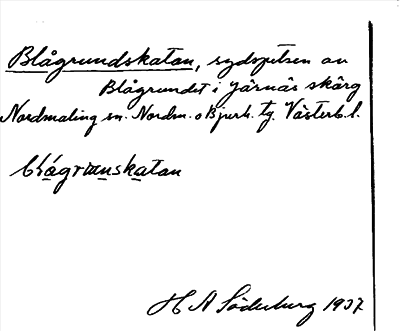 Blågrundskatan, sydspetsen av
Blågrundet i Järnäs skärg
Nordmaling sn. Nordm. o Bjurh. tg. Västerb. l.
skatan
H A Söderberg 1937